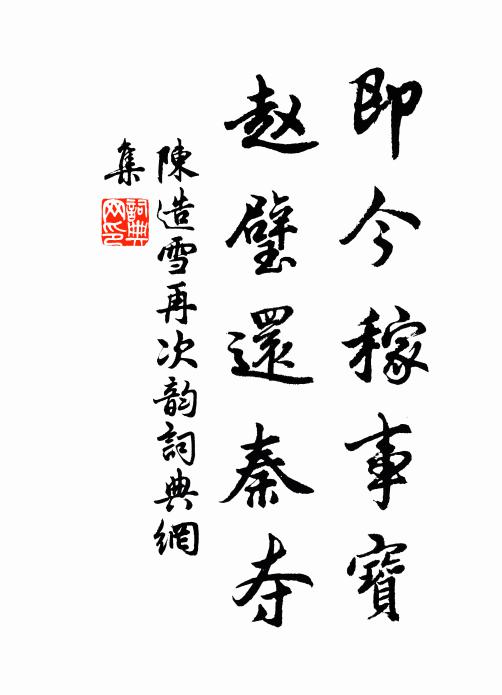 即今稼事寶
赵璧還秦夺
陳造雪再次韵詞典網
集
詞典
网印